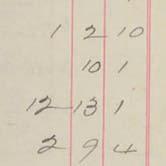 1 2 10
10 1
12 13 1
2 9 4